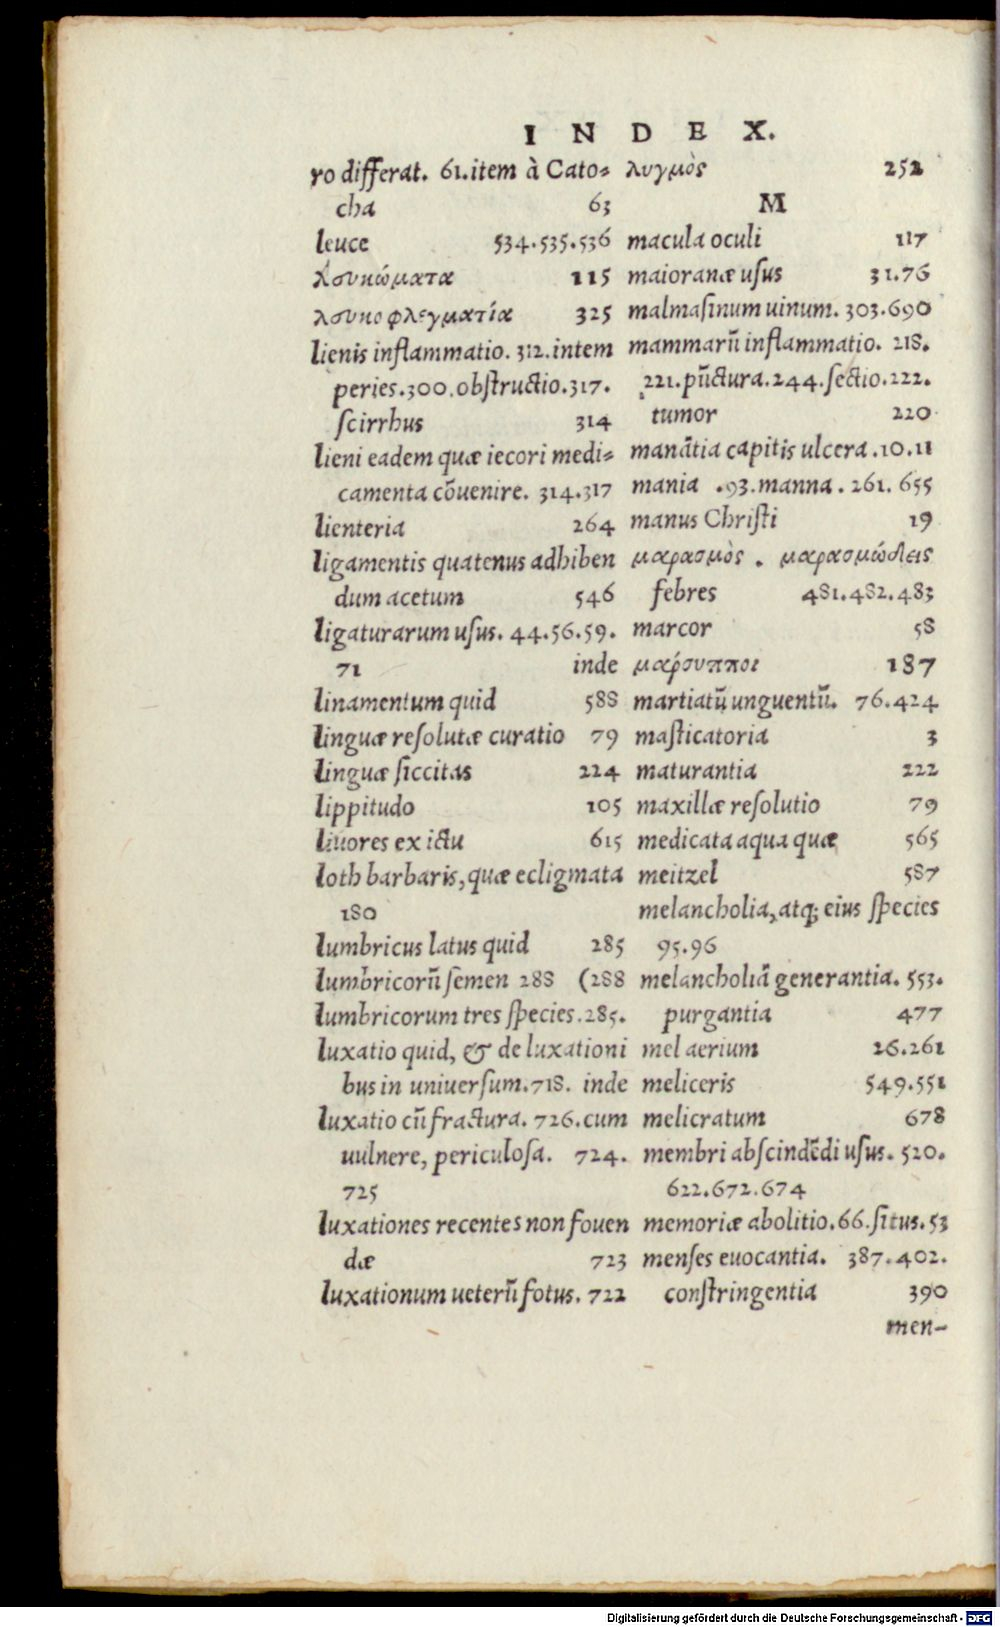 INDEX.
ro differat. 61. item à Cato-
cha 63
leuce 534.535.536
λευκώματα 115
λευκοφλεγματία 325
lienis inflammatio. 312. intem
peries. 300. obstructio. 317.
scirrhus 314
lieni eadem quæ iecori medi-
camenta cōuenire. 314.317
lienteria 264
ligamentis quatenus adhiben
dum acetum 546
ligaturarum usus. 44.56.59.
71 inde
linamentum quid 588
linguæ resolutæ curatio 79
linguæ siccitas 224
lippitudo 105
liuores ex ictu 615
loth barbaris, quæ ecligmata
180
lumbricus latus quid 285
lumbricorū semen 288 (288
lumbricorum tres species. 285.
luxatio quid, & de luxationi
bus in uniuersum. 718. inde
luxatio cū fractura. 726. cum
uulnere, periculosa. 724.
725
luxationes recentes non fouen
dæ 723
luxationum ueterū fotus. 722
λυγμὸς 252
M
macula oculi 117
maioranæ usus 31.76
malmasinum uinum. 303.690
mammarū inflammatio. 218.
221. pūctura. 244. sectio. 222.
tumor 220
manātia capitis ulcera. 10.11
mania .93. manna. 261. 655
manus Christi 19
μαρασμὸς. μαρασμώδεις
febres 481.482.483
marcor 58
μαρσυπποι 187
martiatū unguentū. 76.424
masticatoria 3
maturantia 222
maxillæ resolutio 79
medicata aqua quæ 565
meitzel 587
melancholia, atq; eius species
95.96
melancholiā generantia. 553.
purgantia 477
mel aerium 26.261
meliceris 549.551
melicratum 678
membri abscindēdi usus. 520.
622.672.674
memoriæ abolitio. 66. situs. 53
menses euocantia. 387.402.
constringentia 390
men-
Digitalisierung gefördert durch die Deutsche Forschungsgemeinschaft - DFG